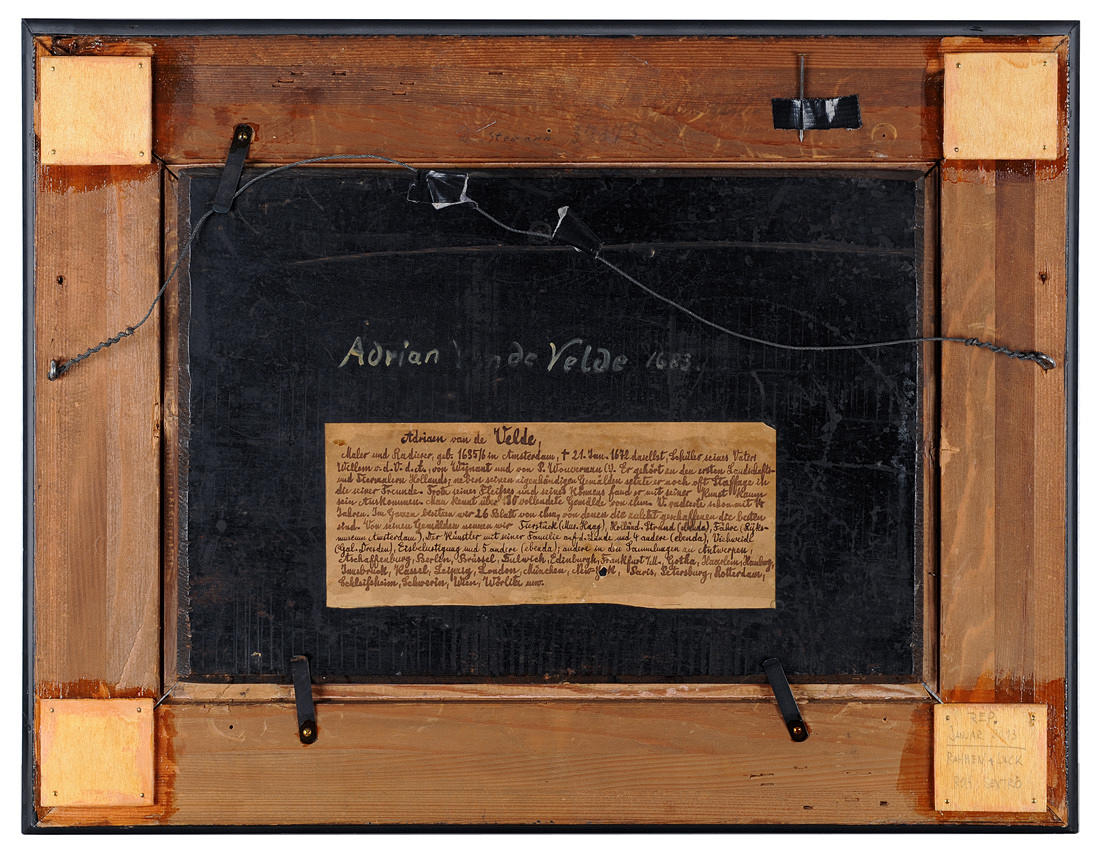 Adrian van de Velde 1683.
Adriaen van de Velde,
Maler und Radierer, geb. 1635/6 in Amsterdam, † 21. Jan. 1672 daselbst, Schüler seines Vaters
Willem v. d. V. d. ä., von Wijnant und von P. Wouverman (?). Er gehört zu den ersten Landschafts-
und Tiermalern Hollands; neben seinen eigenhändigen Gemälden setzte er noch oft Staffage in
die seiner Freunde. Trotz seines Fleißes und seines Könnens fand er mit seiner Kunst kaum
sein Auskommen. Man kennt über 180 vollendete Gemälde von ihm. V. radierte schon mit 14
Jahren. Im Ganzen besitzen wir 26 Blatt von ihm, von denen die zuletzt geschaffenen die besten
sind. Von seinen Gemälden nennen wir Tierstück (Mus. Haag), Holländ. Strand (ebenda), Fähre (Rijks-
museum Amsterdam), Der Künstler mit seiner Familie auf d. Lande und 4 andere (ebenda), Viehweide
(Gal. Dresden), Eisbelustigung und 5 andere (ebenda); andere in den Sammlungen zu Antwerpen,
Aschaffenburg, Berlin, Brüssel, Dulwich, Edinburgh, Frankfurt /M. Gotha, Haarlem, Hamburg,
Innsbruck, Kassel, Leipzig, London, München, Paris, Petersburg, Rotterdam,
Schleißheim, Schwerin, Wien, Wörlitz usw.
REP.
JANUAR
RAHMEN + LACK